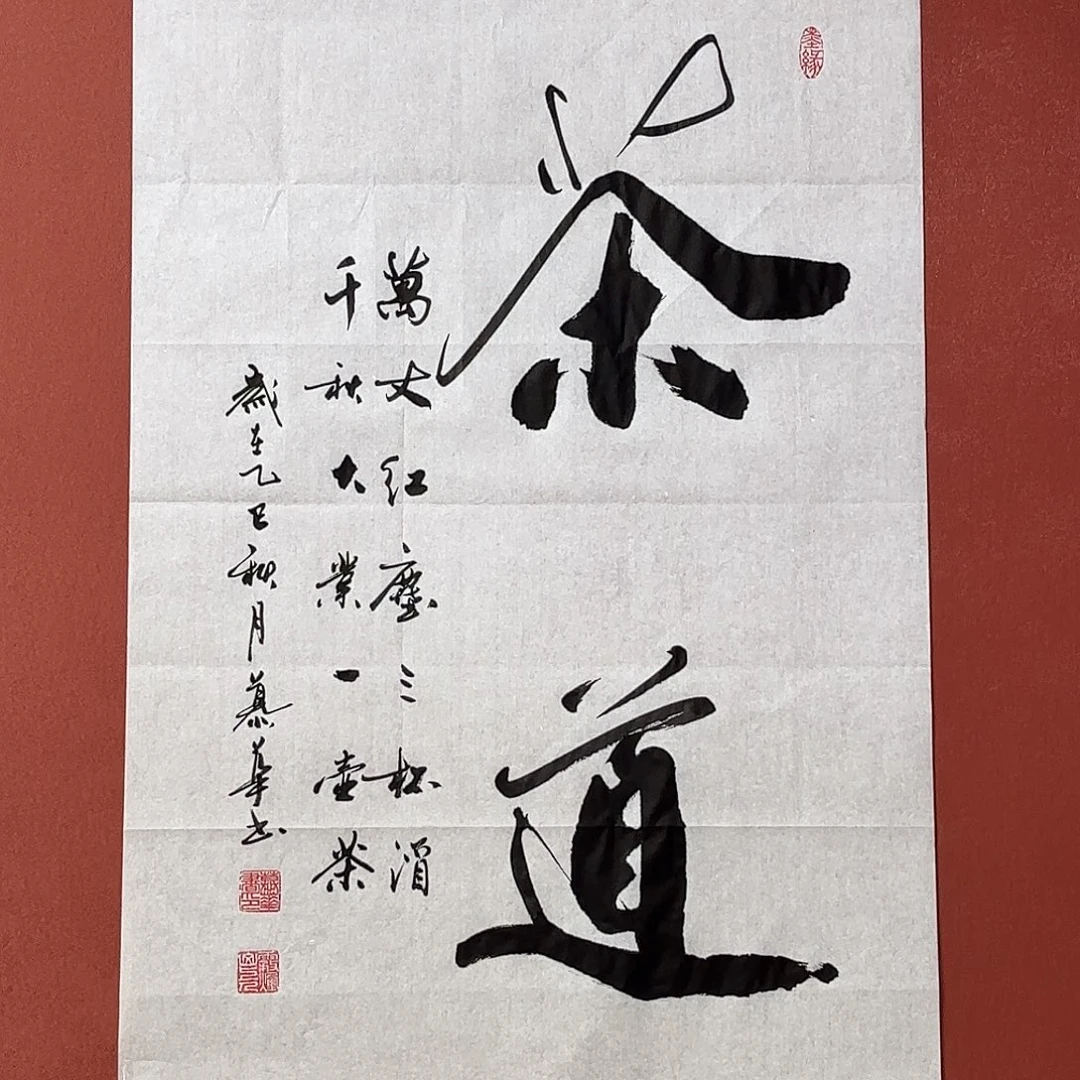 墨緣
茶道
萬丈红塵三杯酒
千秋大業一壺茶
歲在乙巳秋月慕華书